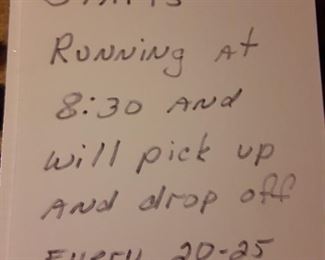 Starts
Running at
8:30 and
will pick up
and drop off
Every 20-25